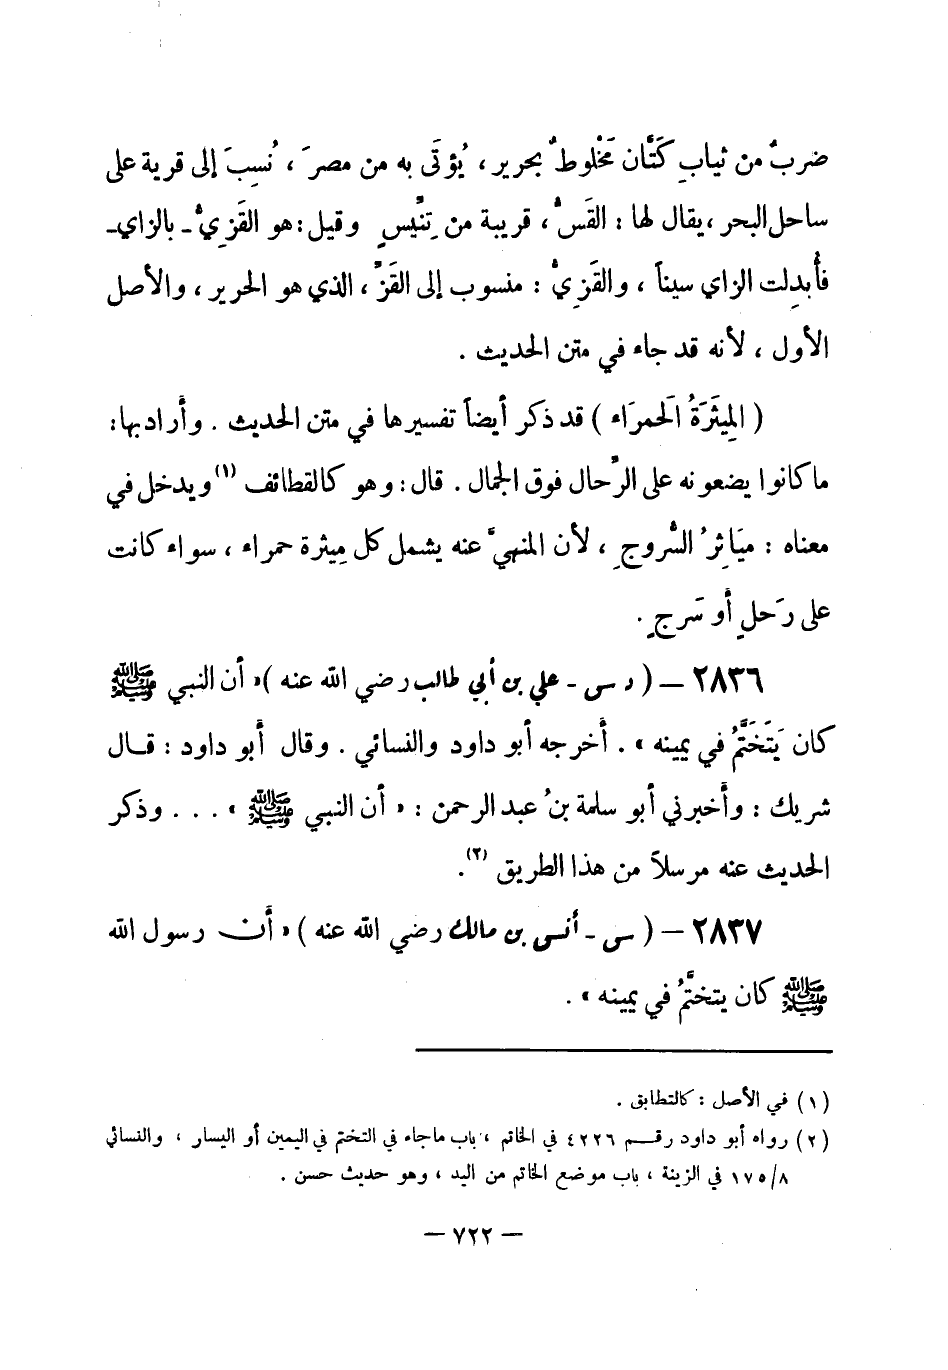 ضربٌ من ثيابِ كَتَّان مَخْلوطٌ بحرير ، يُؤتَى به من مصرَ ، نُسِبَ إلى قرية على
ساحل البحر ، يقال لها : القَسُّ ، قريبة من تِنِّيسٍ وقيل : هو القَزِيُّ ـ بالزاي ـ
فأُبدِلت الزاي سيناً ، والقَزيُّ : منسوب إلى القَزِّ ، الذي هو الحرير ، والأصل
الأول ، لأنه قد جاء في متن الحديث .
( المِيثَرَةُ الَحمرَاء ) قد ذكر أيضاً تفسيرها في متن الحديث . وأراد بها :
ما كانوا يضعونه على الرِّحال فوق الجمال . قال : وهو كالقطائف (١) ويدخل في
معناه : مَيَاثِرُ السُّروجِ ، لأن المنهيَّ عنه يشمل كل مِيثرة حمراء ، سواء كانت
على رَحلٍ أو سَرجٍ .
٢٨٣٦ — ( د س - علي بن أبي طالب رضي الله عنه ) « أن النبي ﷺ
كان يَتَخَتَّمُ في يمينه » . أخرجه أبو داود والنسائي . وقال أبو داود : قال
شريك : وأخبرني أبو سلمة بنُ عبد الرحمن : « أن النبي ﷺ » . . . وذكر
الحديث عنه مرسلاً من هذا الطريق (٢) .
٢٨٣٧ — ( س - أنس بن مالك رضي الله عنه ) « أن رسول الله
ﷺ كان يتختَّمُ في يمينه » .
(١) في الأصل : كالتطابق .
(٢) رواه أبو داود رقم ٤٢٢٦ في الخاتم ، باب ماجاء في التختم في اليمين أو اليسار ، والنسائي
٨/١٧٥ في الزينة ، باب موضع الخاتم من اليد ، وهو حديث حسن .
— ٧٢٢ —